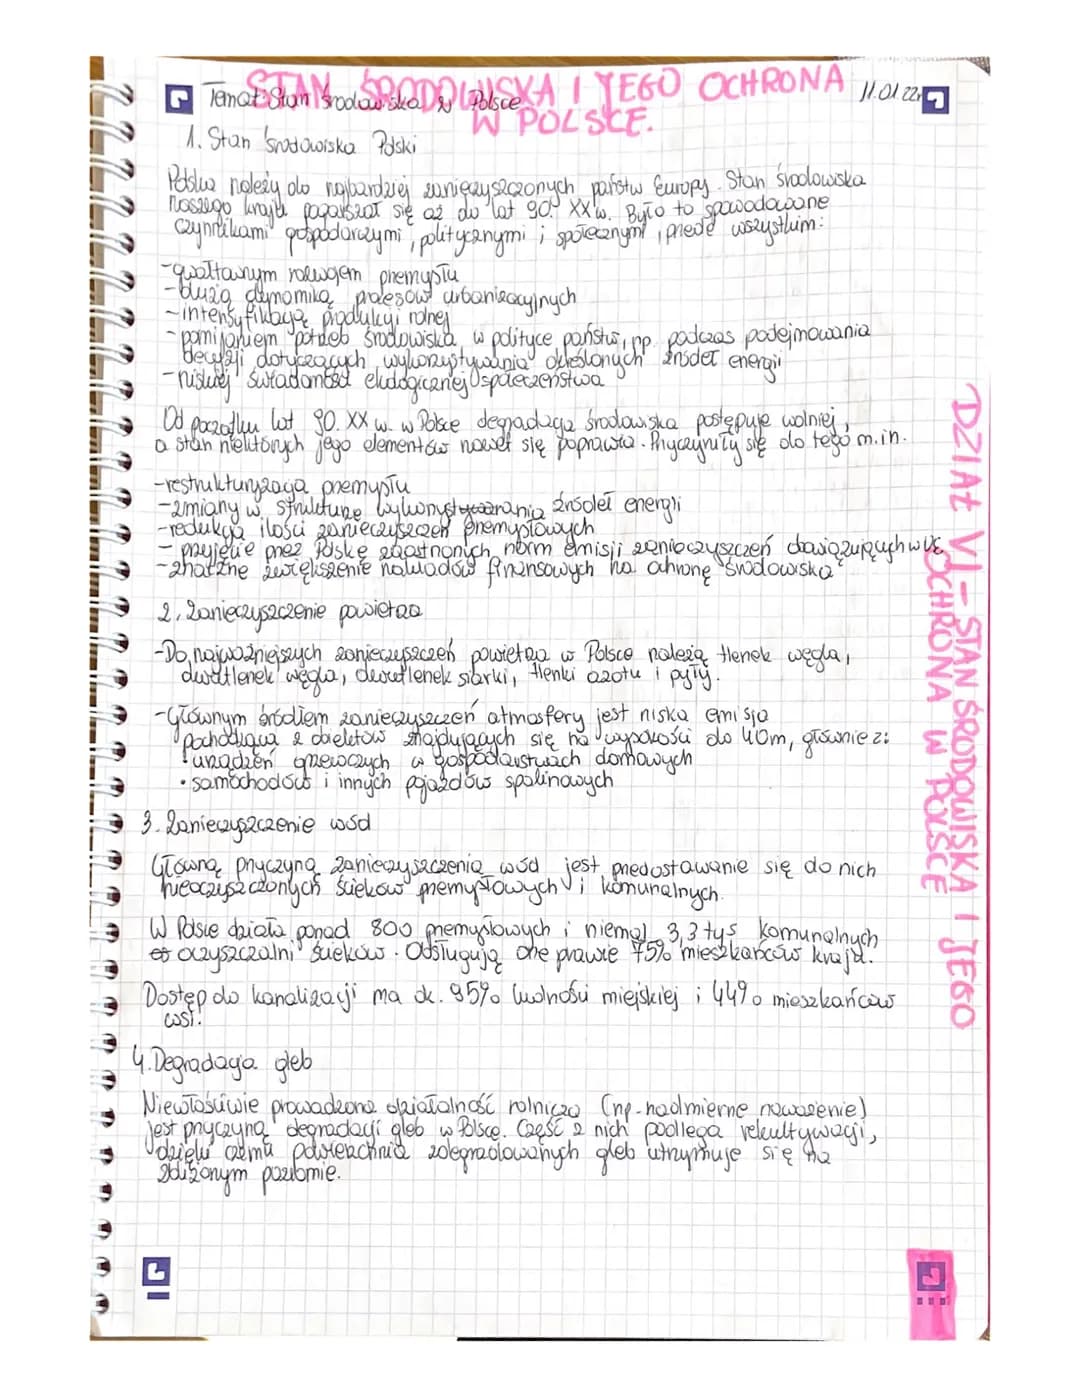 STAN ŚRODOWISKA I JEGO OCHRONA
W POLSCE.
11.01.22r
Temat: Stan środowiska w Polsce
1. Stan środowiska Polski
Polska należy do najbardziej zanieczyszczonych państw Europy. Stan środowiska
naszego kraju pogarszał się aż do lat 90. XX w. Było to spowodowane
czynnikami gospodarczymi, politycznymi i społecznymi, przede wszystkim:
-gwałtownym rozwojem przemysłu
-dużą dynamiką procesów urbanizacyjnych
-intensyfikacją produkcji rolnej
-pomijaniem potrzeb środowiska w polityce państwa, np. podczas podejmowania
decyzji dotyczących wykorzystywania określonych źródeł energii
-niskiej świadomości ekologicznej społeczeństwa
Od początku lat 90. XX w. w Polsce degradacja środowiska postępuje wolniej,
a stan niektórych jego elementów nawet się poprawia. Przyczyniły się do tego m.in.
-restrukturyzacja przemysłu
-zmiany w strukturze wykorzystywania źródeł energii
-redukcja ilości zanieczyszczeń przemysłowych
-przyjęcie przez Polskę zaostrzonych norm emisji zanieczyszczeń obowiązujących w UE
-znaczne zwiększenie nakładów finansowych na ochronę środowiska
2. Zanieczyszczenie powietrza
-Do najważniejszych zanieczyszczeń powietrza w Polsce należą tlenek węgla,
dwutlenek węgla, dwutlenek siarki, tlenki azotu i pyły.
-Głównym źródłem zanieczyszczeń atmosfery jest niska emisja
pochodząca z obiektów znajdujących się na wysokości do 40m, głównie z:
• urządzeń grzewczych w gospodarstwach domowych
• samochodów i innych pojazdów spalinowych
3. Zanieczyszczenie wód
Główną przyczyną zanieczyszczenia wód jest przedostawanie się do nich
nieoczyszczonych ścieków przemysłowych i komunalnych.
W Polsce działa ponad 800 przemysłowych i niemal 3,3 tys komunalnych
oczyszczalni ścieków. Obsługują one prawie 75% mieszkańców kraju.
Dostęp do kanalizacji ma ok. 95% ludności miejskiej i 44% mieszkańców
wsi.
4. Degradacja gleb
Niewłaściwie prowadzona działalność rolnicza (np. nadmierne nawożenie)
jest przyczyną degradacji gleb w Polsce. Część z nich podlega rekultywacji,
dzięki czemu powierzchnia zdegradowanych gleb utrzymuje się na
zbliżonym poziomie.
DZIAŁ VI - STAN ŚRODOWISKA I JEGO
OCHRONA W POLSCE